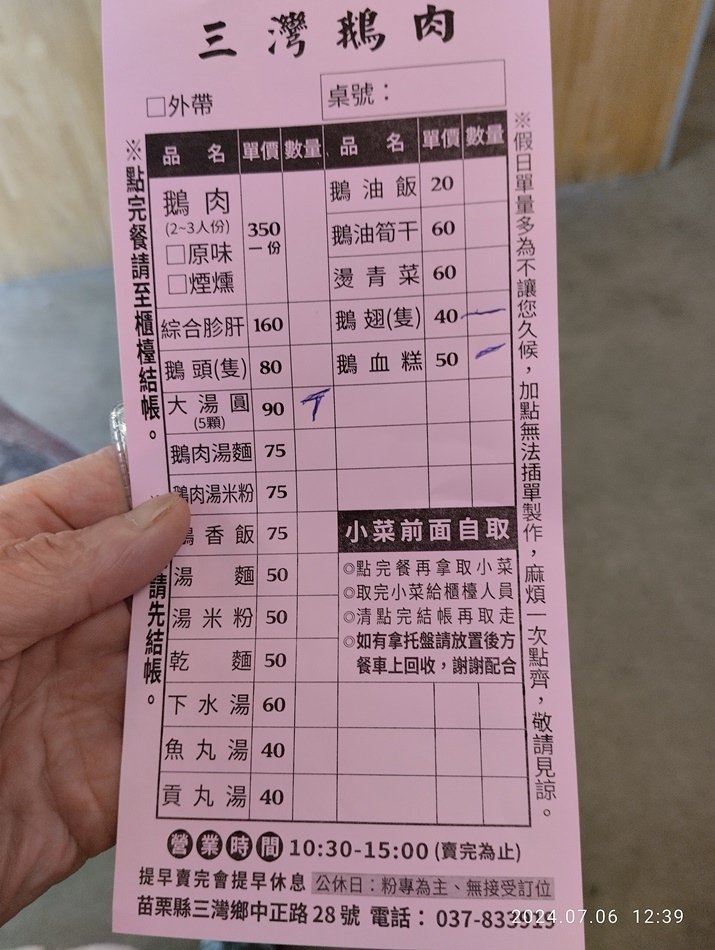 三灣鵝肉
□外帶
桌號：
品名 單價 數量 品名 單價 數量
鵝肉
(2~3人份)
□原味
□煙燻
350
一份
綜合胗肝 160
鵝頭(隻) 80
大湯圓
(5顆)
90
鵝肉湯麵 75
鵝肉湯米粉 75
香飯 75
湯麵 50
湯米粉 50
乾麵 50
下水湯 60
魚丸湯 40
貢丸湯 40
鵝油飯 20
鵝油筍干 60
燙青菜 60
鵝翅(隻) 40 一
鵝血糕 50
小菜前面自取
◎點完餐再拿取小菜
◎取完小菜給櫃檯人員
◎清點完結帳再取走
◎如有拿托盤請放置後方
餐車上回收，謝謝配合
※點完餐請至櫃檯結帳。
請先結帳。
※假日單量多為不讓您久候，加點無法插單製作，麻煩一次點齊，敬請見諒。
營業時間 10:30-15:00 (賣完為止)
提早賣完會提早休息 公休日：粉專為主、無接受訂位
苗栗縣三灣鄉中正路28號 電話： 037-833919
2024.07.06 12:39